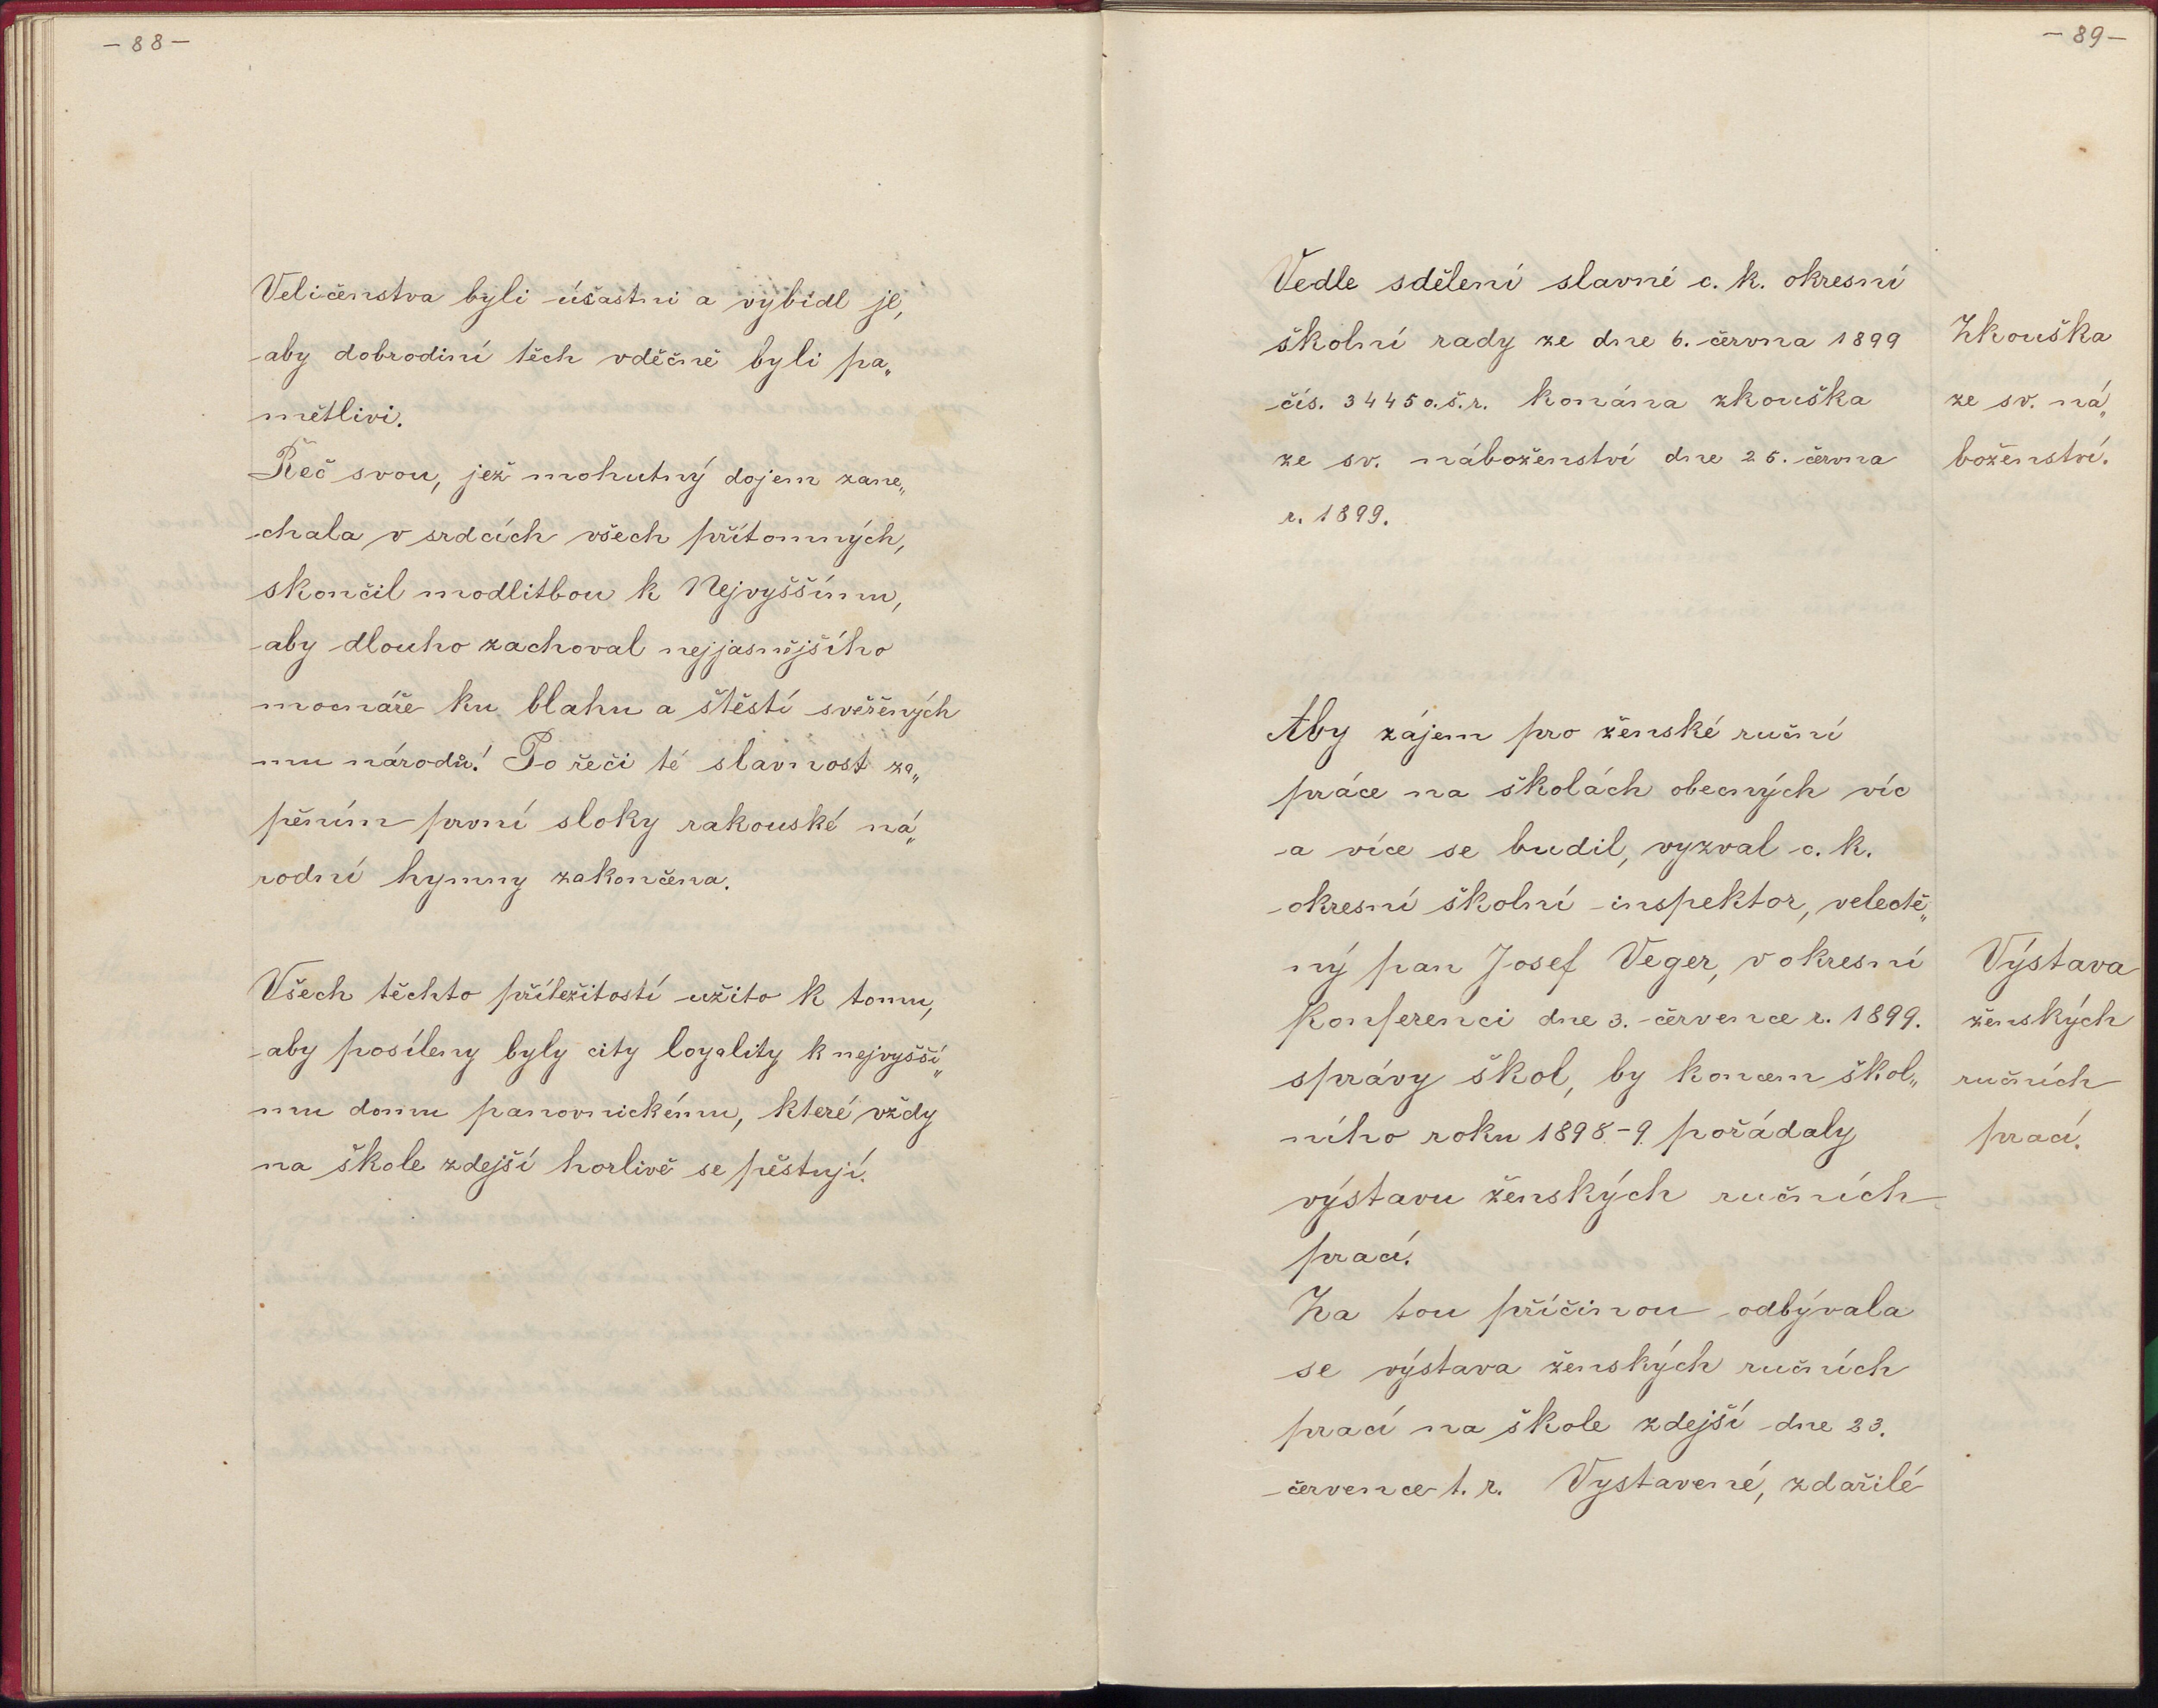 -88-
Veličenstva byli účastni a vybídl je,
aby dobrodiní těch vděčně byli pa„
mětlivi.
Řeč svou, jež mohutný dojem zane„
chala v srdcích všech přítomných,
skončil modlitbou k Nejvyššímu,
aby dlouho zachoval nejjasnějšího
mocnáře ku blahu a štěstí svěřených
mu národů! Po řeči té slavnost za„
pěním první sloky rakouské ná„
rodní hymny zakončena.
Všech těchto příležitostí užito k tomu,
aby posíleny byly city loyality k nejvyšší„
mu domu panovnickému, které vždy
na škole zdejší horlivě se pěstují.
-89-
Vedle sdělení slavné c. k. okresní
školní rady ze dne 6. června 1899
čís. 3445 o.š.r. konána zkouška
ze sv. náboženství dne 25. června
r. 1899.
Zkouška
ze sv. ná„
boženství.
Aby zájem pro ženské ruční
práce na školách obecných víc
a více se budil, vyzval c. k.
okresní školní inspektor, velectě„
ný pan Josef Veger, v okresní
konferenci dne 3. července r. 1899.
správy škol, by koncem škol„
ního roku 1898.-9. pořádaly
výstavu ženských ručních
prací.
Výstava
ženských
ručních
prací.
Za tou příčinou odbývala
se výstava ženských ručních
prací na škole zdejší dne 23.
července t. r. Vystavené, zdařilé